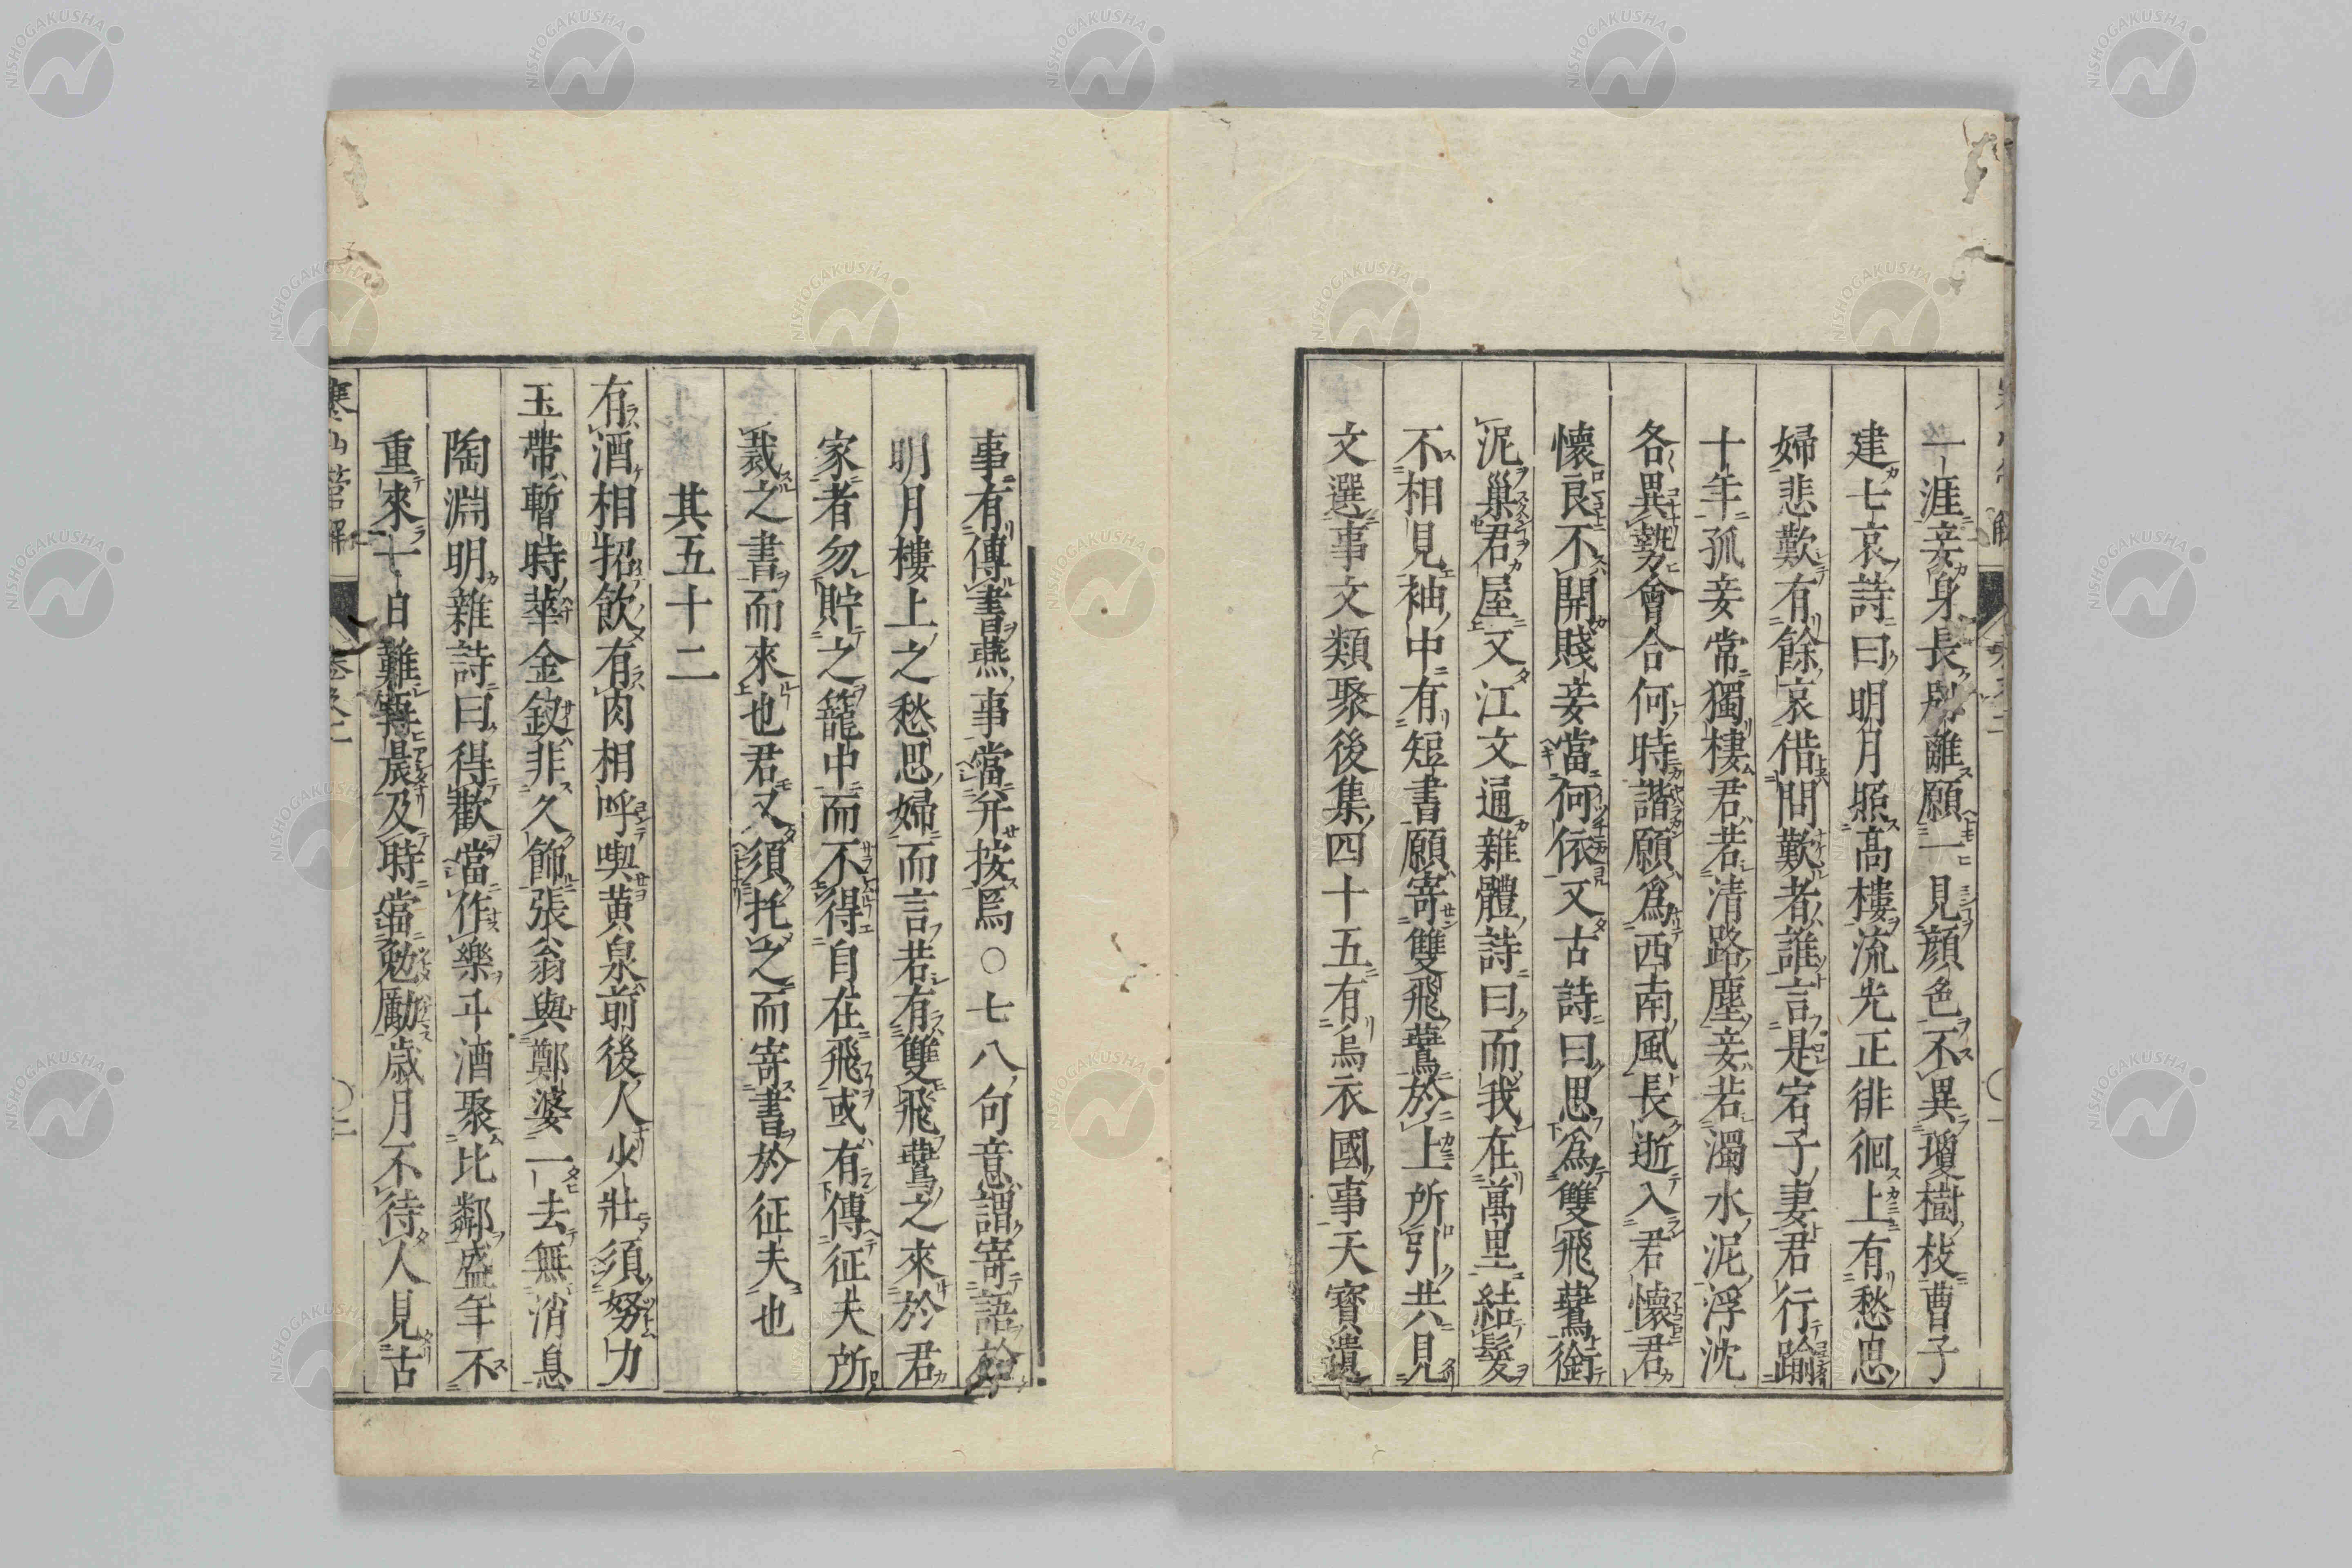 一涯妾身長別離願一見顔色不異瓊樹枝曹子
建七哀詩曰明月照高樓流光正徘徊上有愁思
婦悲歎有餘哀借問歎者誰言是宕子妻君行踰
十年孤妾常獨棲君若清路塵妾若濁水泥浮沈
各異勢會合何時諧願爲西南風長逝入君懷君
懷良不開賤妾當何依又古詩曰思爲雙飛鷰銜
泥巢君屋又江文通雜體詩曰而我在萬里結髮
不相見袖中有短書願寄雙飛鷰於上所引共見
文選事文類聚後集四十五有烏衣國事天寶遺
事有傳書燕事當并按焉○七八句意謂寄語於
明月樓上之愁思婦而言若有雙飛鷰之來於君
家者勿貯之籠中而不得自在飛或有傳征夫所
裁之書而來也君又須托之而寄書於征夫也
其五十二
有酒相招飲有肉相呼喫黄泉前後人少壯須努力
玉帶暫時華金釵非久飾張翁與鄭婆一去無消息
陶淵明雜詩曰得歡當作樂斗酒聚比鄰盛年不
重來一日難再晨及時當勉勵歳月不待人見古
寒山詩解
NISHOGAKUSHA